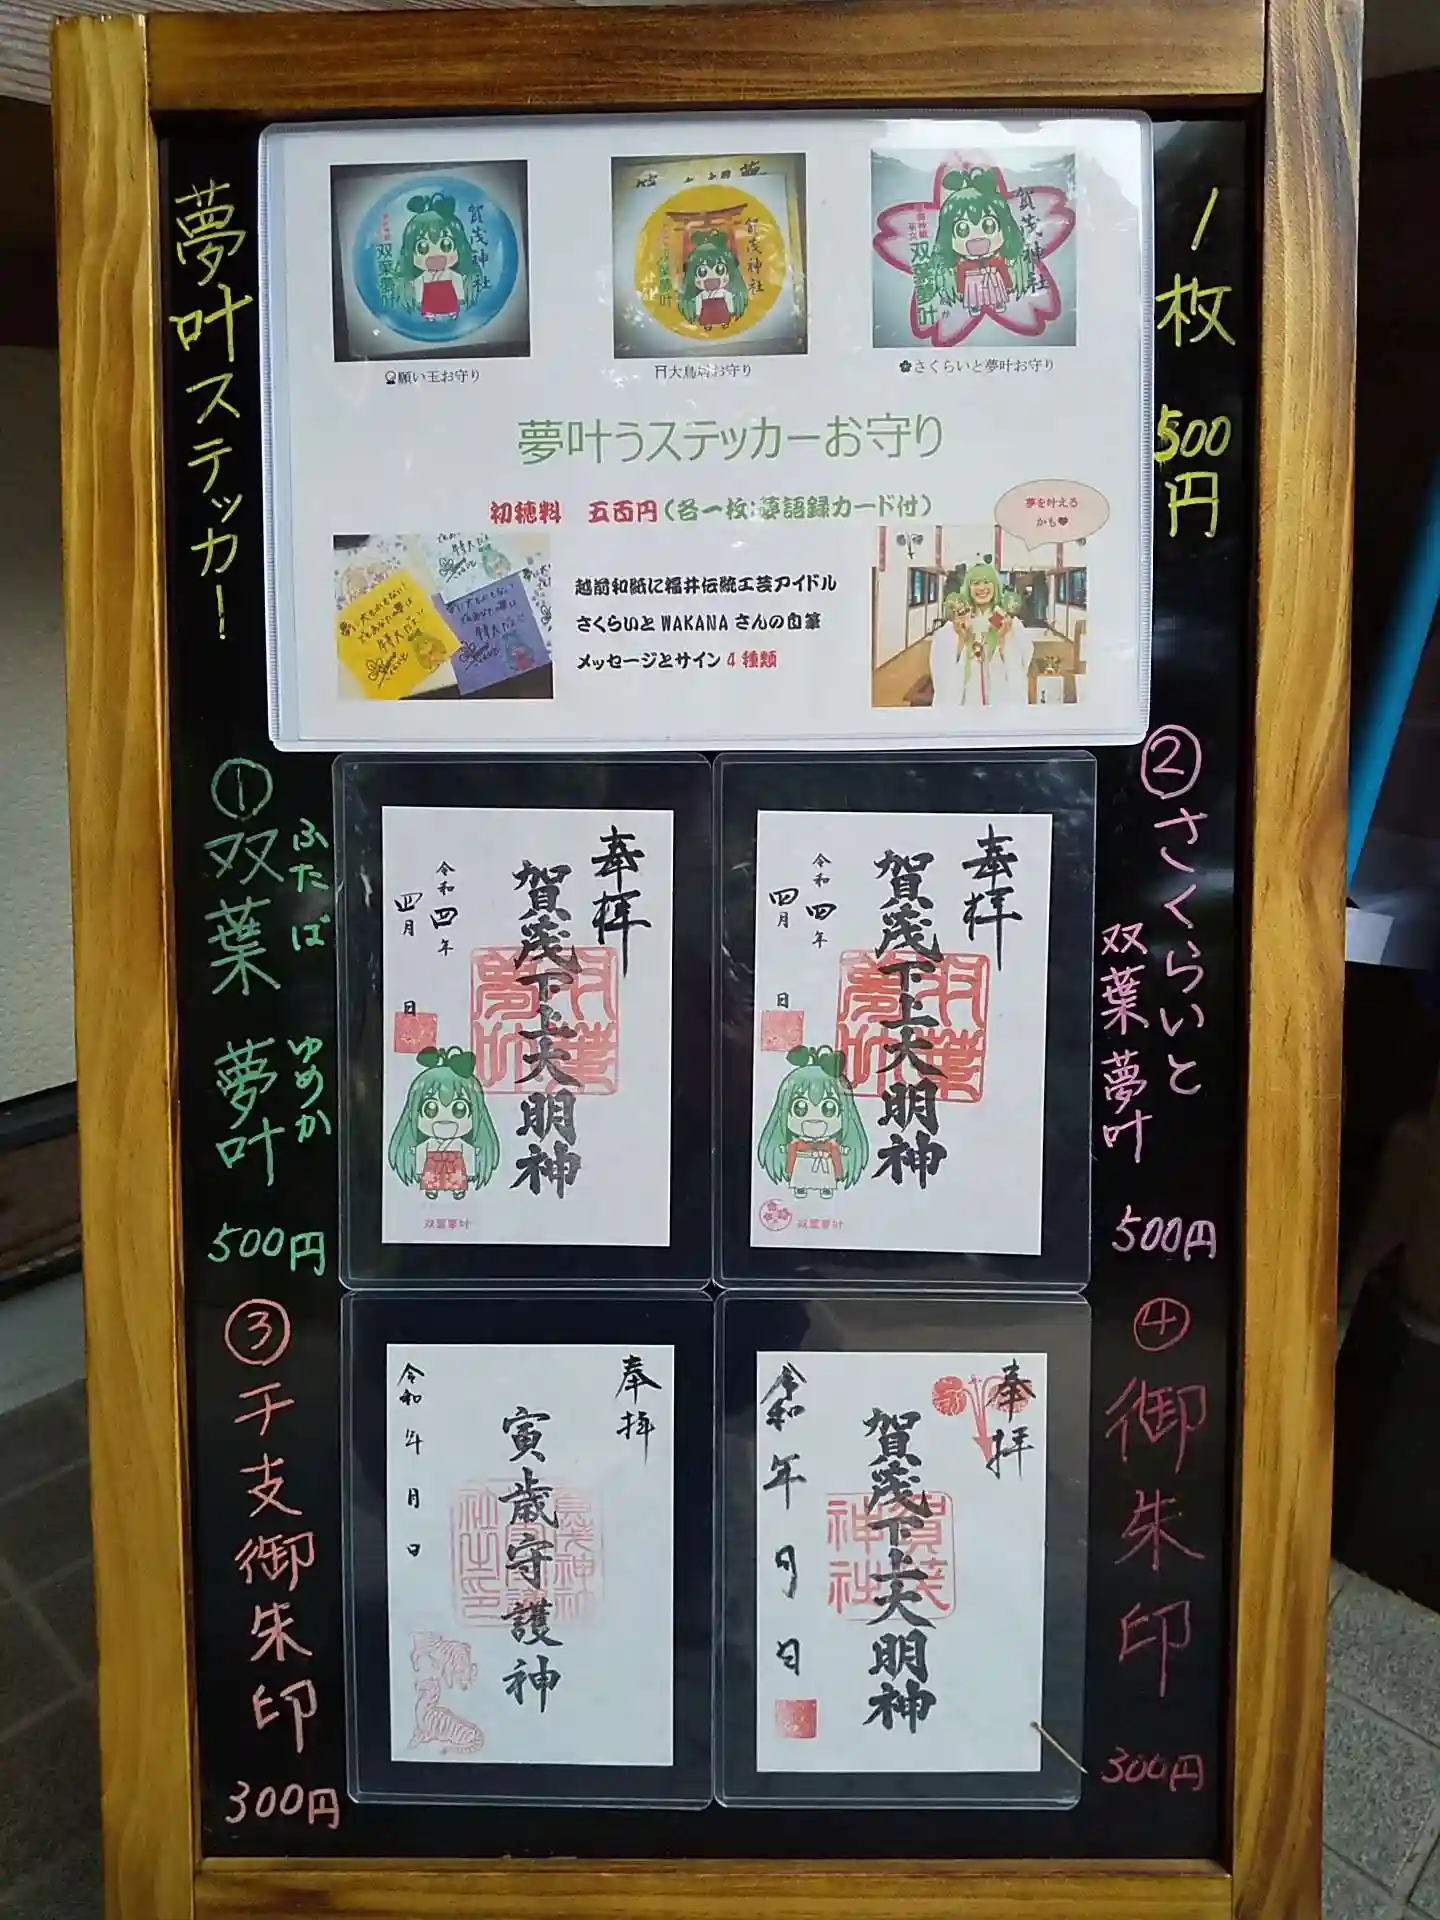 夢叶ステッカー!
1枚 500円
賀茂神社
双葉夢叶
賀茂神社
双葉夢叶
賀茂神社
双葉夢叶
願い玉お守り
大鳥居お守り
さくらいと夢叶お守り
夢叶うステッカーお守り
初穂料 五百円(各一枚:夢語録カード付)
夢を叶える
かも♥
越前和紙に福井伝統工芸アイドル
さくらいとWAKANAさんの自筆
メッセージとサイン4種類
① 双葉 夢叶
ふたば ゆめか
500円
奉拝
賀茂下上大明神
双葉夢叶
令和四年
四月 日
双葉夢叶
② さくらいと
双葉夢叶
500円
奉拝
賀茂下上大明神
双葉夢叶
令和四年
四月 日
双葉夢叶
③ 干支御朱印
300円
奉拝
寅歳守護神
令和 年 月 日
④ 御朱印
300円
奉拝
賀茂下上大明神
賀茂神社
令和 年 月 日